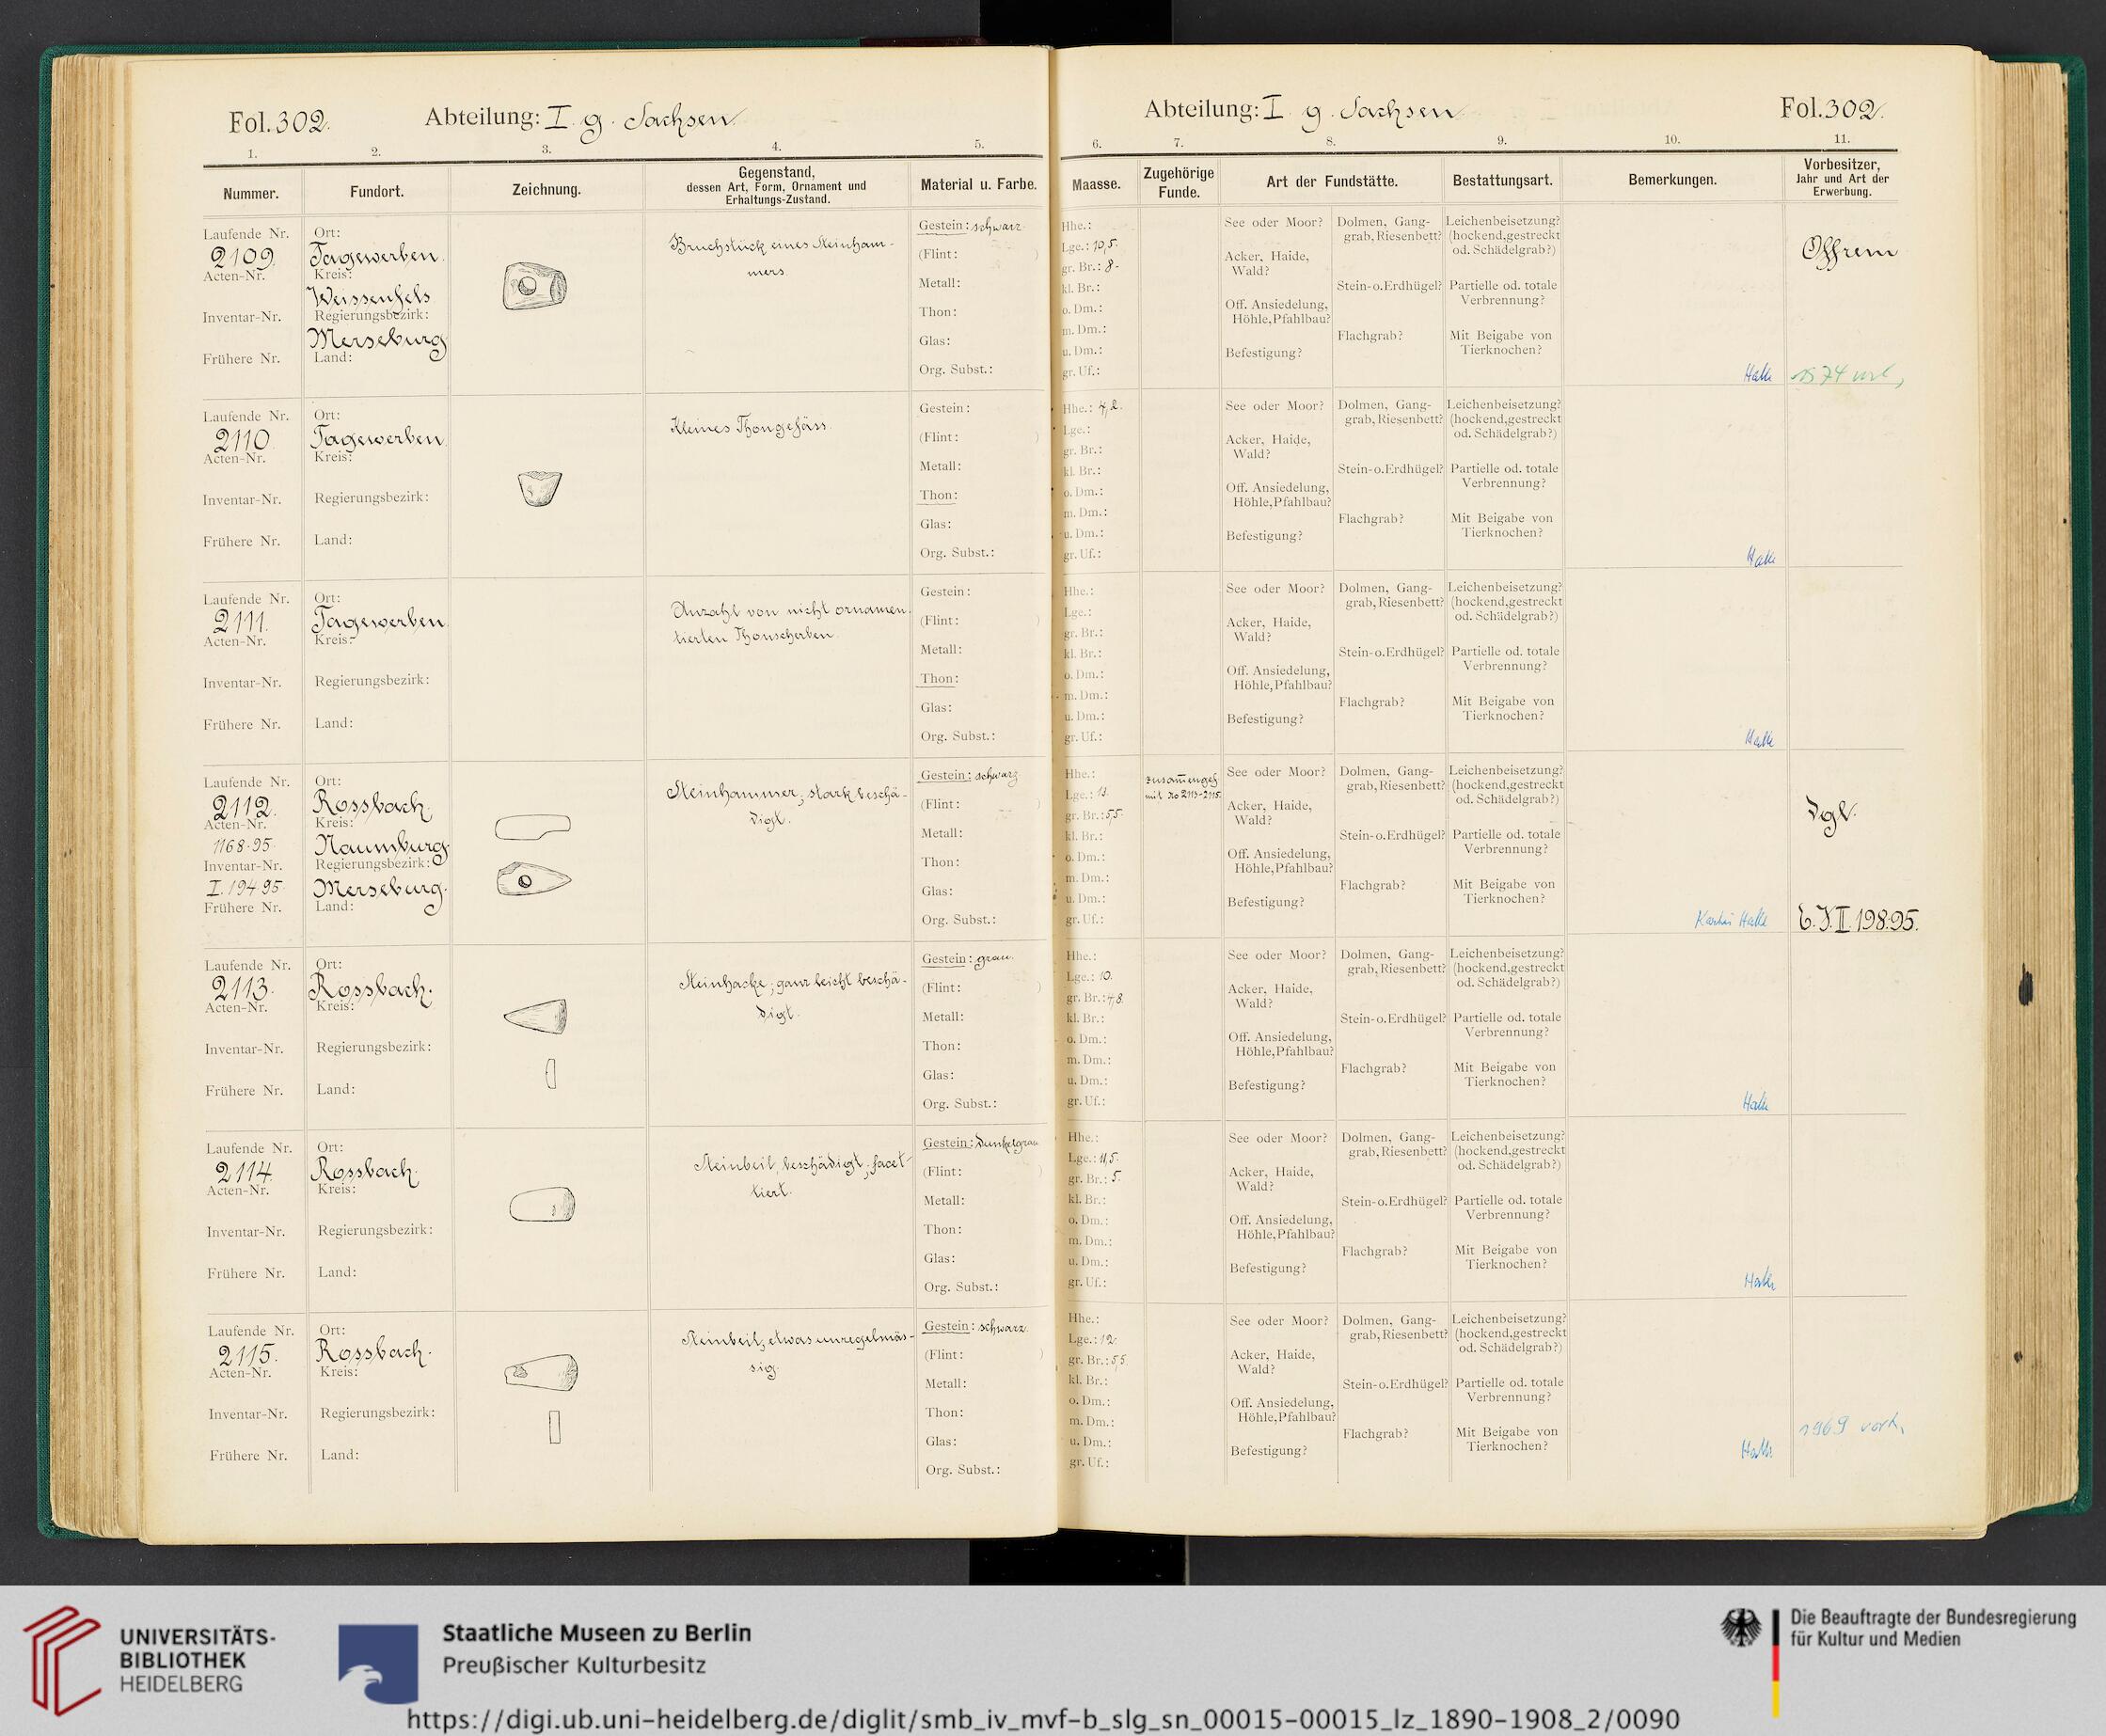 Fol. 302.
Abteilung: I g. Sachsen
1. 2. 3. 4. 5.
Nummer. Fundort. Zeichnung. Gegenstand, dessen Art, Form, Ornament und Erhaltungs-Zustand. Material u. Farbe.
Laufende Nr. 2109. Acten-Nr. Inventar-Nr. Frühere Nr.
Ort: Tagewerben.
Kreis: Weissenfels
Regierungsbezirk: Merseburg
Land:
Bruchstück eines Steinham-
mers
Gestein: schwarz
(Flint: )
Metall:
Thon:
Glas:
Org. Subst.:
Laufende Nr. 2110. Acten-Nr. Inventar-Nr. Frühere Nr.
Ort: Tagewerben.
Kreis:
Regierungsbezirk:
Land:
Kleines Thongefäss.
Gestein:
(Flint: )
Metall:
Thon:
Glas:
Org. Subst.:
Laufende Nr. 2111. Acten-Nr. Inventar-Nr. Frühere Nr.
Ort: Tagewerben.
Kreis:
Regierungsbezirk:
Land:
Anzahl von nicht ornamen-
tierten Thonscherben.
Gestein:
(Flint: )
Metall:
Thon:
Glas:
Org. Subst.:
Laufende Nr. 2112. Acten-Nr. 1168.95. Inventar-Nr. I. 194.95. Frühere Nr.
Ort: Rossbach.
Kreis: Naumburg.
Regierungsbezirk: Merseburg.
Land:
Steinhammer; stark beschä-
digt.
Gestein: schwarz
(Flint: )
Metall:
Thon:
Glas:
Org. Subst.:
Laufende Nr. 2113. Acten-Nr. Inventar-Nr. Frühere Nr.
Ort: Rossbach.
Kreis:
Regierungsbezirk:
Land:
Steinhacke; ganz leicht beschä-
digt.
Gestein: grau.
(Flint: )
Metall:
Thon:
Glas:
Org. Subst.:
Laufende Nr. 2114. Acten-Nr. Inventar-Nr. Frühere Nr.
Ort: Rossbach.
Kreis:
Regierungsbezirk:
Land:
Steinbeil, beschädigt; facet-
tiert.
Gestein: dunkelgrau
(Flint: )
Metall:
Thon:
Glas:
Org. Subst.:
Laufende Nr. 2115. Acten-Nr. Inventar-Nr. Frühere Nr.
Ort: Rossbach.
Kreis:
Regierungsbezirk:
Land:
Steinbeil; etwas unregelmäs-
sig.
Gestein: schwarz.
(Flint: )
Metall:
Thon:
Glas:
Org. Subst.:
Abteilung: I g. Sachsen
Fol. 302.
6. 7. 8. 9. 10. 11.
Maasse. Zugehörige Funde. Art der Fundstätte. Bestattungsart. Bemerkungen. Vorbesitzer, Jahr und Art der Erwerbung.
Hhe.:
Lge.: 10,5.
gr. Br.: 8-
kl. Br.:
o. Dm.:
m. Dm.:
u. Dm.:
gr. Uf.:
See oder Moor?
Acker, Haide, Wald?
Off. Ansiedelung, Höhle, Pfahlbau?
Befestigung?
Dolmen, Gang-
grab, Riesenbett?
Stein-o. Erdhügel?
Flachgrab?
Leichenbeisetzung?
(hockend, gestreckt
od. Schädelgrab?)
Partielle od. totale
Verbrennung?
Mit Beigabe von
Tierknochen?
Halle
Hhe.: 4,2.
Lge.:
gr. Br.:
kl. Br.:
o. Dm.:
m. Dm.:
u. Dm.:
gr. Uf.:
See oder Moor?
Acker, Haide, Wald?
Off. Ansiedelung, Höhle, Pfahlbau?
Befestigung?
Dolmen, Gang-
grab, Riesenbett?
Stein-o. Erdhügel?
Flachgrab?
Leichenbeisetzung?
(hockend, gestreckt
od. Schädelgrab?)
Partielle od. totale
Verbrennung?
Mit Beigabe von
Tierknochen?
Halle
Hhe.:
Lge.:
gr. Br.:
kl. Br.:
o. Dm.:
m. Dm.:
u. Dm.:
gr. Uf.:
See oder Moor?
Acker, Haide, Wald?
Off. Ansiedelung, Höhle, Pfahlbau?
Befestigung?
Dolmen, Gang-
grab, Riesenbett?
Stein-o. Erdhügel?
Flachgrab?
Leichenbeisetzung?
(hockend, gestreckt
od. Schädelgrab?)
Partielle od. totale
Verbrennung?
Mit Beigabe von
Tierknochen?
Halle
Hhe.:
Lge.:
gr. Br.: 5,5.
kl. Br.:
o. Dm.:
m. Dm.:
u. Dm.:
gr. Uf.:
zusamengef.
mit No 2113-2115.
See oder Moor?
Acker, Haide, Wald?
Off. Ansiedelung, Höhle, Pfahlbau?
Befestigung?
Dolmen, Gang-
grab, Riesenbett?
Stein-o. Erdhügel?
Flachgrab?
Leichenbeisetzung?
(hockend, gestreckt
od. Schädelgrab?)
Partielle od. totale
Verbrennung?
Mit Beigabe von
Tierknochen?
Halle
dgl.
II. 198.95.
Hhe.:
Lge.: 10.
gr. Br.: 4,8.
kl. Br.:
o. Dm.:
m. Dm.:
u. Dm.:
gr. Uf.:
See oder Moor?
Acker, Haide, Wald?
Off. Ansiedelung, Höhle, Pfahlbau?
Befestigung?
Dolmen, Gang-
grab, Riesenbett?
Stein-o. Erdhügel?
Flachgrab?
Leichenbeisetzung?
(hockend, gestreckt
od. Schädelgrab?)
Partielle od. totale
Verbrennung?
Mit Beigabe von
Tierknochen?
Halle
Hhe.:
Lge.: 11,5.
gr. Br.: 5.
kl. Br.:
o. Dm.:
m. Dm.:
u. Dm.:
gr. Uf.:
See oder Moor?
Acker, Haide, Wald?
Off. Ansiedelung, Höhle, Pfahlbau?
Befestigung?
Dolmen, Gang-
grab, Riesenbett?
Stein-o. Erdhügel?
Flachgrab?
Leichenbeisetzung?
(hockend, gestreckt
od. Schädelgrab?)
Partielle od. totale
Verbrennung?
Mit Beigabe von
Tierknochen?
Halle
Hhe.:
Lge.: 12.
gr. Br.: 5,5.
kl. Br.:
o. Dm.:
m. Dm.:
u. Dm.:
gr. Uf.:
See oder Moor?
Acker, Haide, Wald?
Off. Ansiedelung, Höhle, Pfahlbau?
Befestigung?
Dolmen, Gang-
grab, Riesenbett?
Stein-o. Erdhügel?
Flachgrab?
Leichenbeisetzung?
(hockend, gestreckt
od. Schädelgrab?)
Partielle od. totale
Verbrennung?
Mit Beigabe von
Tierknochen?
Halle
1969 vorh.
UNIVERSITÄTS-
BIBLIOTHEK
HEIDELBERG
Staatliche Museen zu Berlin
Preußischer Kulturbesitz
Die Beauftragte der Bundesregierung
für Kultur und Medien
https://digi.ub.uni-heidelberg.de/diglit/smb_iv_mvf-b_slg_sn_00015-00015_lz_1890-1908_2/0090